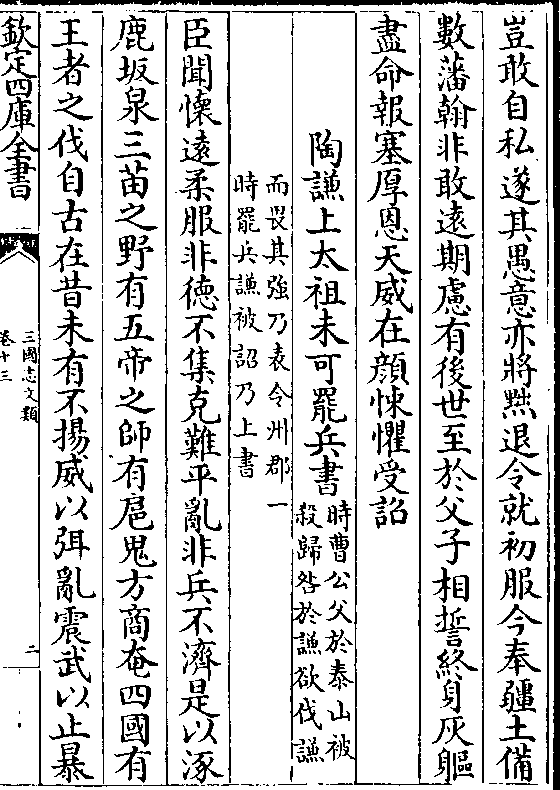 豈敢自私遂其愚意亦將黜退令就初服今奉疆土備
數藩翰非敢遠期慮有後世至於父子相誓終身灰軀
盡命報塞厚恩天威在顔悚懼受詔
陶謙上太祖未可罷兵書
時曹公父於泰山被
殺歸咎於謙欲伐謙
而畏其強乃表令州郡一
時罷兵謙被詔乃上書
臣聞懷遠柔服非徳不集克難平亂非兵不濟是以涿
鹿坂泉三苗之野有五帝之師有扈鬼方商奄四國有
王者之伐自古在昔未有不揚威以弭亂震武以止暴
欽定四庫全書
三國志文類
卷十三
二